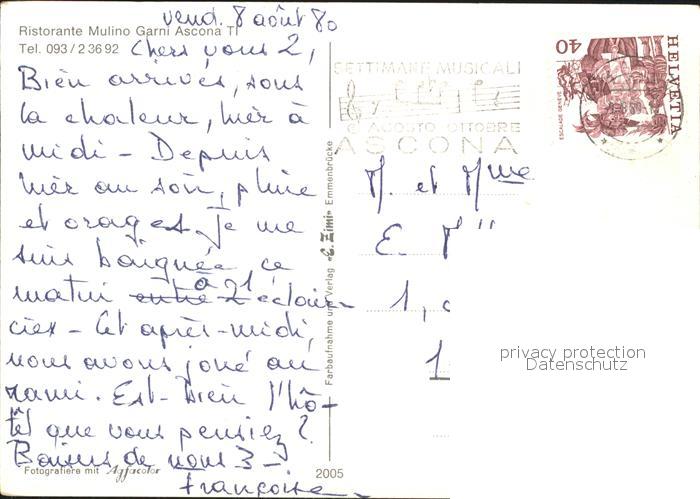 vend. 8 août 80
Ristorante Mulino Garni Ascona TI
Tel. 093/2 36 92
Chers vous 2,
Bien arrivés, sous
la chaleur, hier à
midi - Depuis
hier au soir, pluie
et orages. Je me
suis baignée ce
matin entre 2 éclair-
cies - Cet après-midi,
nous avons joué au
rami. Est-bien l'hô-
tel que vous pensiez ?
Baisers de nous 3 -
Françoise
Fotografiere mit Agfacolor
2005
Farbaufnahme und Verlag «C. Zimi» Emmenbrücke
SETTIMANE MUSICALI
AGOSTO OTTOBRE
ASCONA
HELVETIA
40
ESCALADE GENÈVE
M. et Mme
E. M
1,
1
privacy protection
Datenschutz